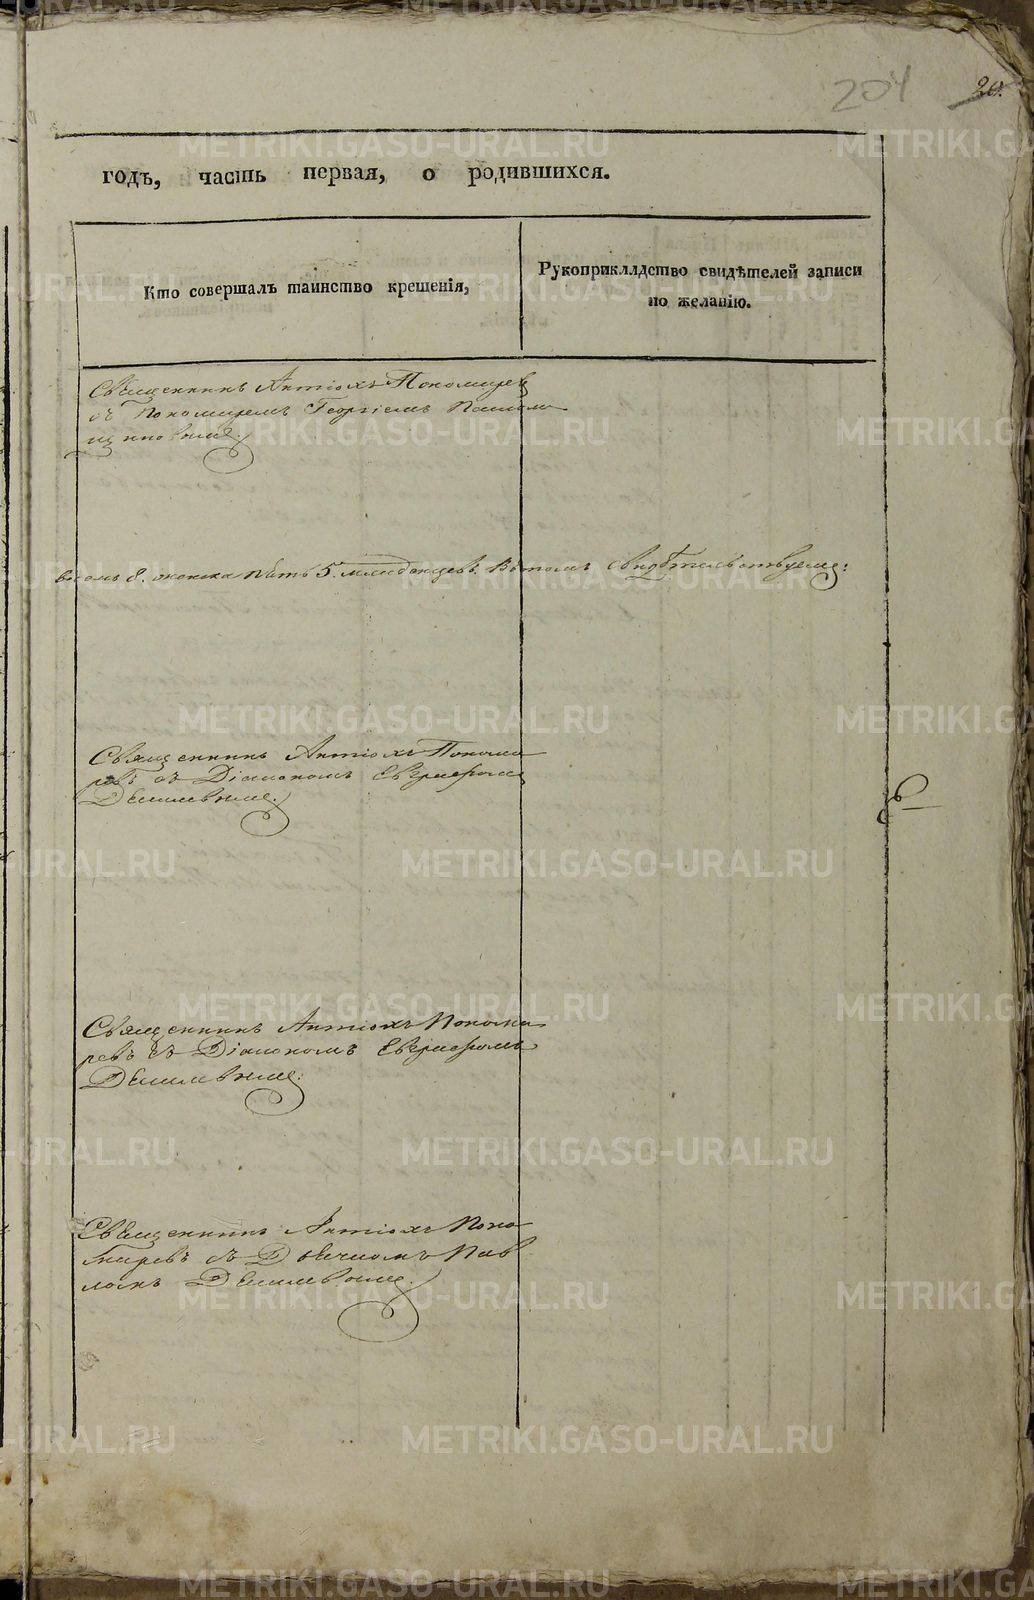 204 20.
годъ, часть первая, о родившихся.
Кто совершалъ таинство крещенія,
Рукоприкллдство свидѣтелей записи
по желанію.
Священникъ Антіохъ Пономарев
съ Пономаремъ Георгіемъ
восемь 8. женска пять 5. младенцевъ. Въ томъ свидѣтельствуемъ:
Священникъ Антіохъ Понома
ревъ съ Діакономъ Евграфомъ
Священникъ Антіохъ Понома
ревъ съ Діакономъ Евграфомъ
Священникъ Антіохъ Поно
маревъ съ Дьячкомъ Пав
ломъ
METRIKI.GASO-URAL.RU